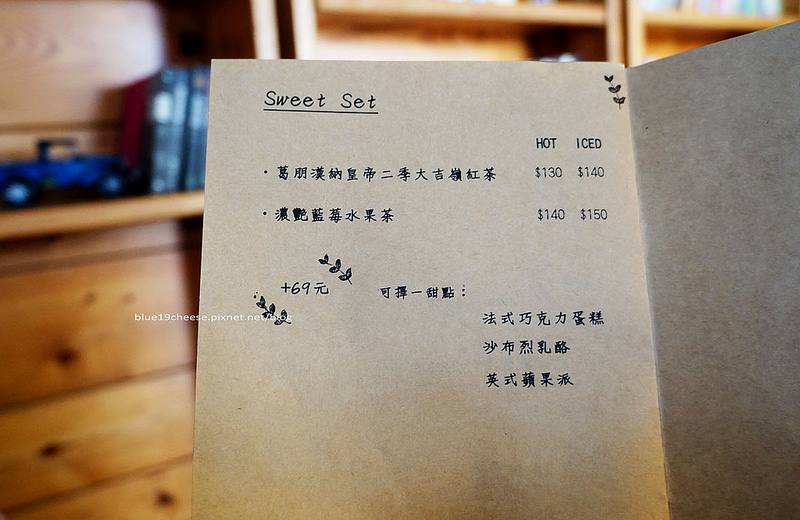 Sweet Set
HOT ICED
・葛朋漢納皇帝二季大吉嶺紅茶 $130 $140
・濃艷藍莓水果茶 $140 $150
+69元 可擇一甜點：
blue19cheese.pixnet.net/blog
法式巧克力蛋糕
沙布烈乳酪
英式蘋果派